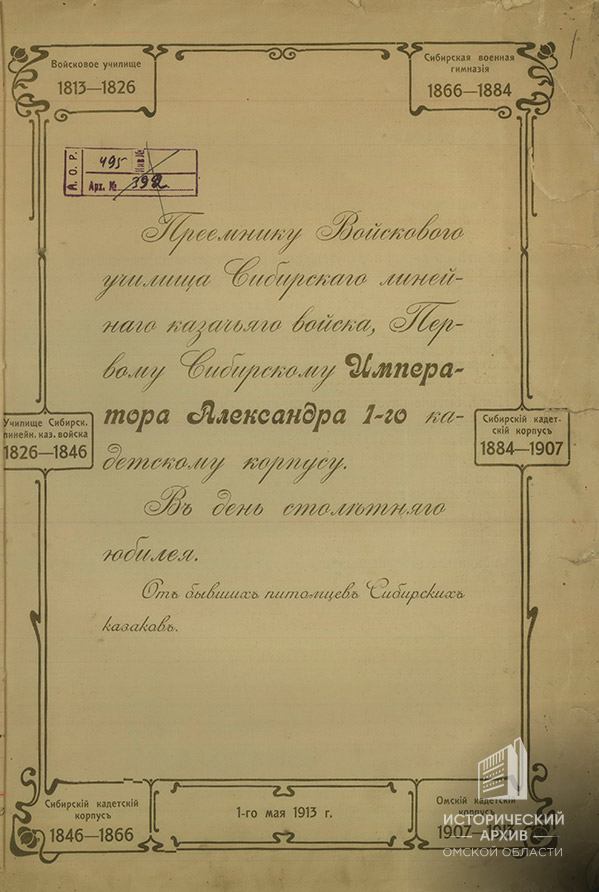 Войсковое училище
1813—1826
Сибирская военная
гимназія
1866—1884
1
А. О. Р.
495
Арх. №
392
Преемнику Войскового
училища Сибирскаго линей-
наго казачьяго войска, Пер-
вому Сибирскому Импера-
тора Александра 1-го ка-
детскому корпусу.
Въ день столѣтняго
юбилея.
Отъ бывшихъ питомцевъ Сибирскихъ
казаковъ.
Училище Сибирск.
линейн. каз. войска
1826—1846
Сибирскій кадет-
скій корпусъ
1884—1907
Сибирскій кадетскій
корпусъ
1846—1866
1-го мая 1913 г.
Омскій кадетскій
корпусъ
ИСТОРИЧЕСКИЙ
АРХИВ
ОМСКОЙ ОБЛАСТИ